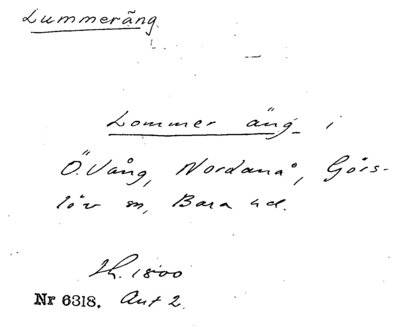 Lummeräng
Lommer äng i
Ö. Vång, Nordanå, Görs-
löv sn, Bara hd.
Sk. 1800
Nr 6318. Akt 2.